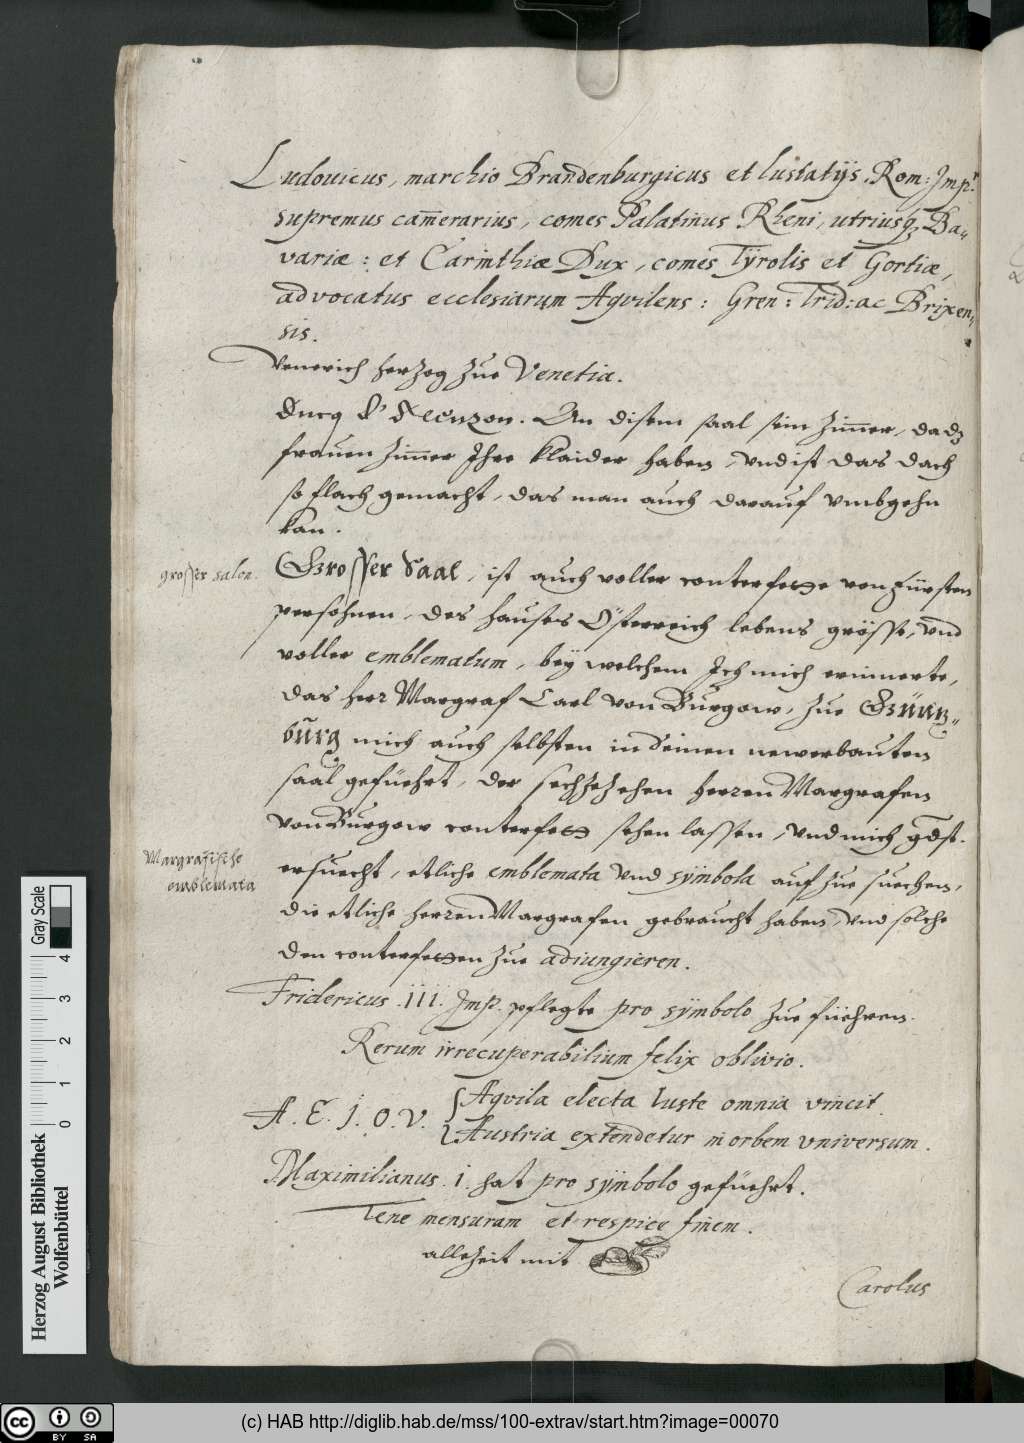 Ludouicus, marchio Brandenburgicus et lustatijs, Rom: Imp:
supremus cam̄erarius, comes Palatinus Rheni, utriusq; Ba-
variæ: et Carinthiæ Dux, comes Tÿrolis et Gortiæ,
advocatus ecclesiarum Aqvilens: Gren: Trid: ac Brixen-
sis.
Venerich herzog zue Venetia.
Ducq d'Alenzon. An disem saal sein zim̄er, da dz
frauen zim̄er Ihre klaider haben, vnd ist das dach
so flach gemacht, das man auch darauf vmbgehn
kan.
grosser salon.
Grosser Saal, ist auch voller conterfette von fürsten
persohnen, des hauses Österreich lebens grösse, vnd
voller emblematum, beÿ welchem Ich mich erinnerte,
das herr Margraf Carl von Burgow, zue Günz-
burg mich auch selbsten in seinen newerbauten
saal geführt, der sechzehen herren Margrafen
Margräfische
emblemata
von Burgow conterfett sehen lassen, vnd mich gdst.
ersuecht, etliche emblemata vnd sÿmbola auf zue suechen,
die etliche herren Margrafen gebraucht haben, vnd solche
den conterfetten zue adiungieren.
Fridericus .III. Imp. pflegte pro sÿmbolo zue füehren.
Rerum irrecuperabilium felix oblivio.
A. E. I. O. V. { Aqvila electa Iuste omnia vincit.
Austria extendetur in orbem vniversum.
Maximilianus .i. hat pro sÿmbolo gefüehrt.
Tene mensuram et respice finem.
allezeit mit
Carolus
Herzog August Bibliothek
Wolfenbüttel
Gray Scale
0 1 2 3 4
cc BY SA
(c) HAB http://diglib.hab.de/mss/100-extrav/start.htm?image=00070